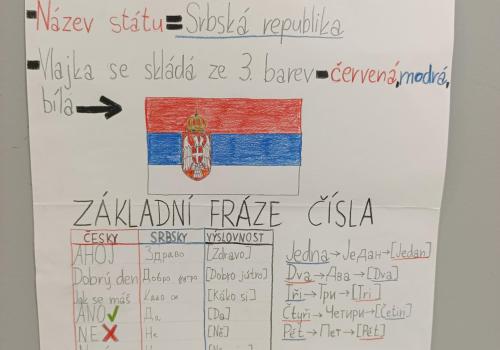 Název státu=Srbská republika
Vlajka se skládá ze 3. barev=červená,modrá,
bílá
ZÁKLADNÍ FRÁZE ČÍSLA
ČESKY SRBSKY VÝSLOVNOST
AHOJ Здраво [Zdravo]
Dobrý den Добро јутро [Dobro jútro]
Jak se máš Како си [Káko si]
ANO Да [Da]
NE Не [NE]
Jedna→Један→[Jedan]
Dva→Два→[Dva]
Tři→Три→[Tri]
Čtyři→Четири→[Četiri]
Pět→Пет→[Pet]